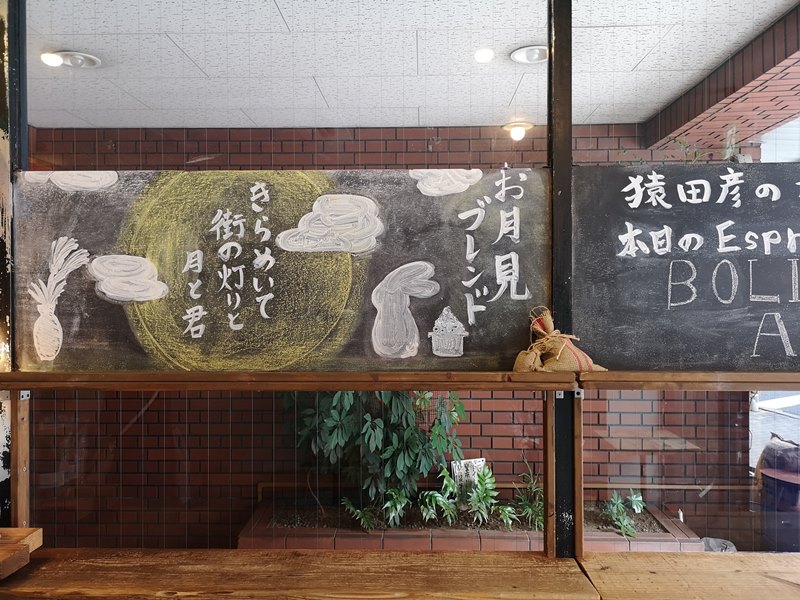 お月見
ブレンド
きらめいて
街の灯りと
月と君
猿田彦の
本日の Espr
BOLI
A